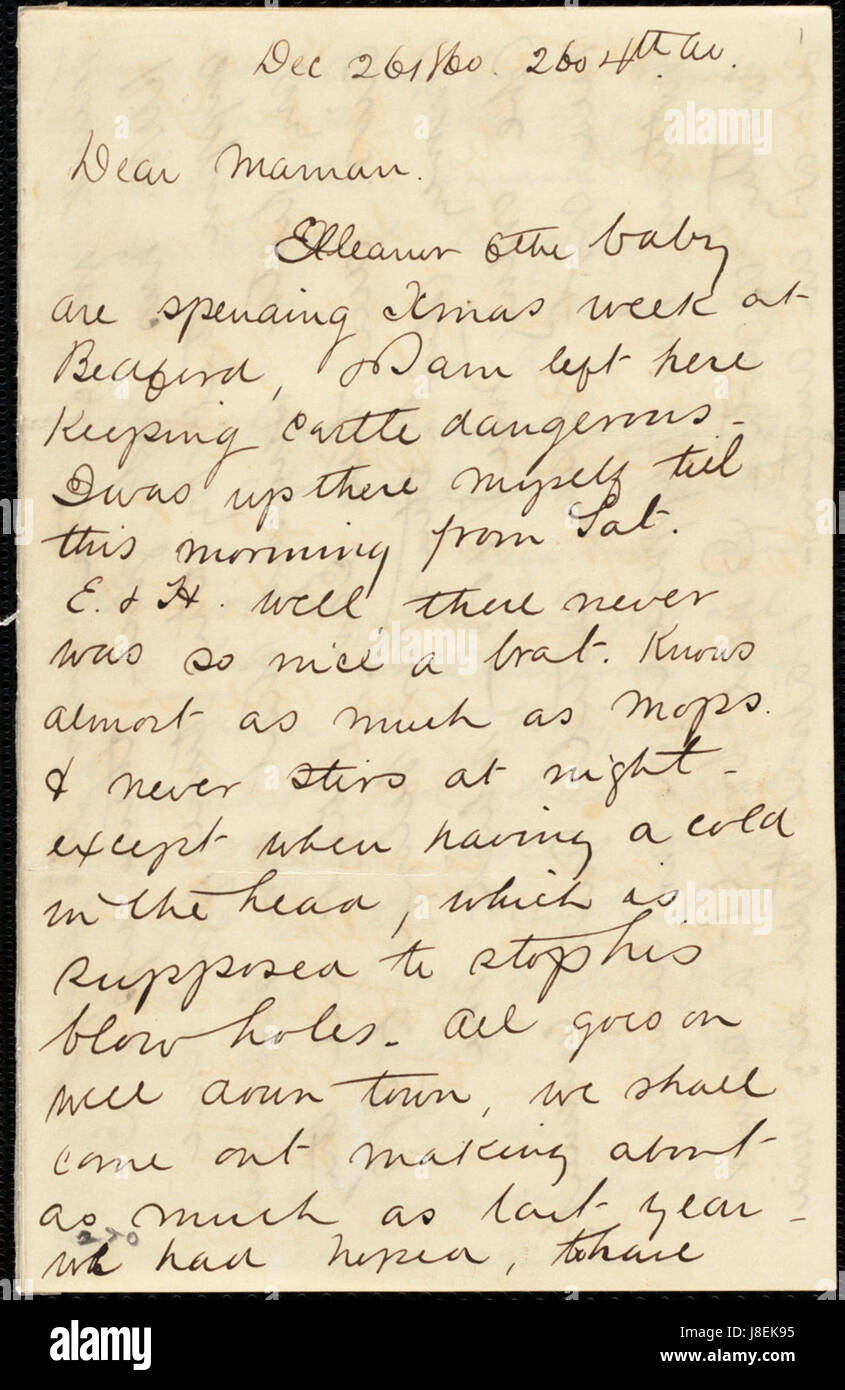 1
Dec 26 1860. 260 4th. av.
Dear Maman.
Elleanor & the baby
are spending Xmas week at
Bedford, & I am left here
Keeping castle dangerous -
I was up there myself till
this morning from Sat.
E. & H. well, there never
was so nice a brat. Knows
almost as much as Mops.
& never stirs at night -
except when having a cold
in the head, which is
supposed to stop his
blow holes - All goes on
well down town, we shall
come out making about
as much as last year -
we had hoped, to have
270
alamy
alamy
Image ID: J8EK95
www.alamy.com